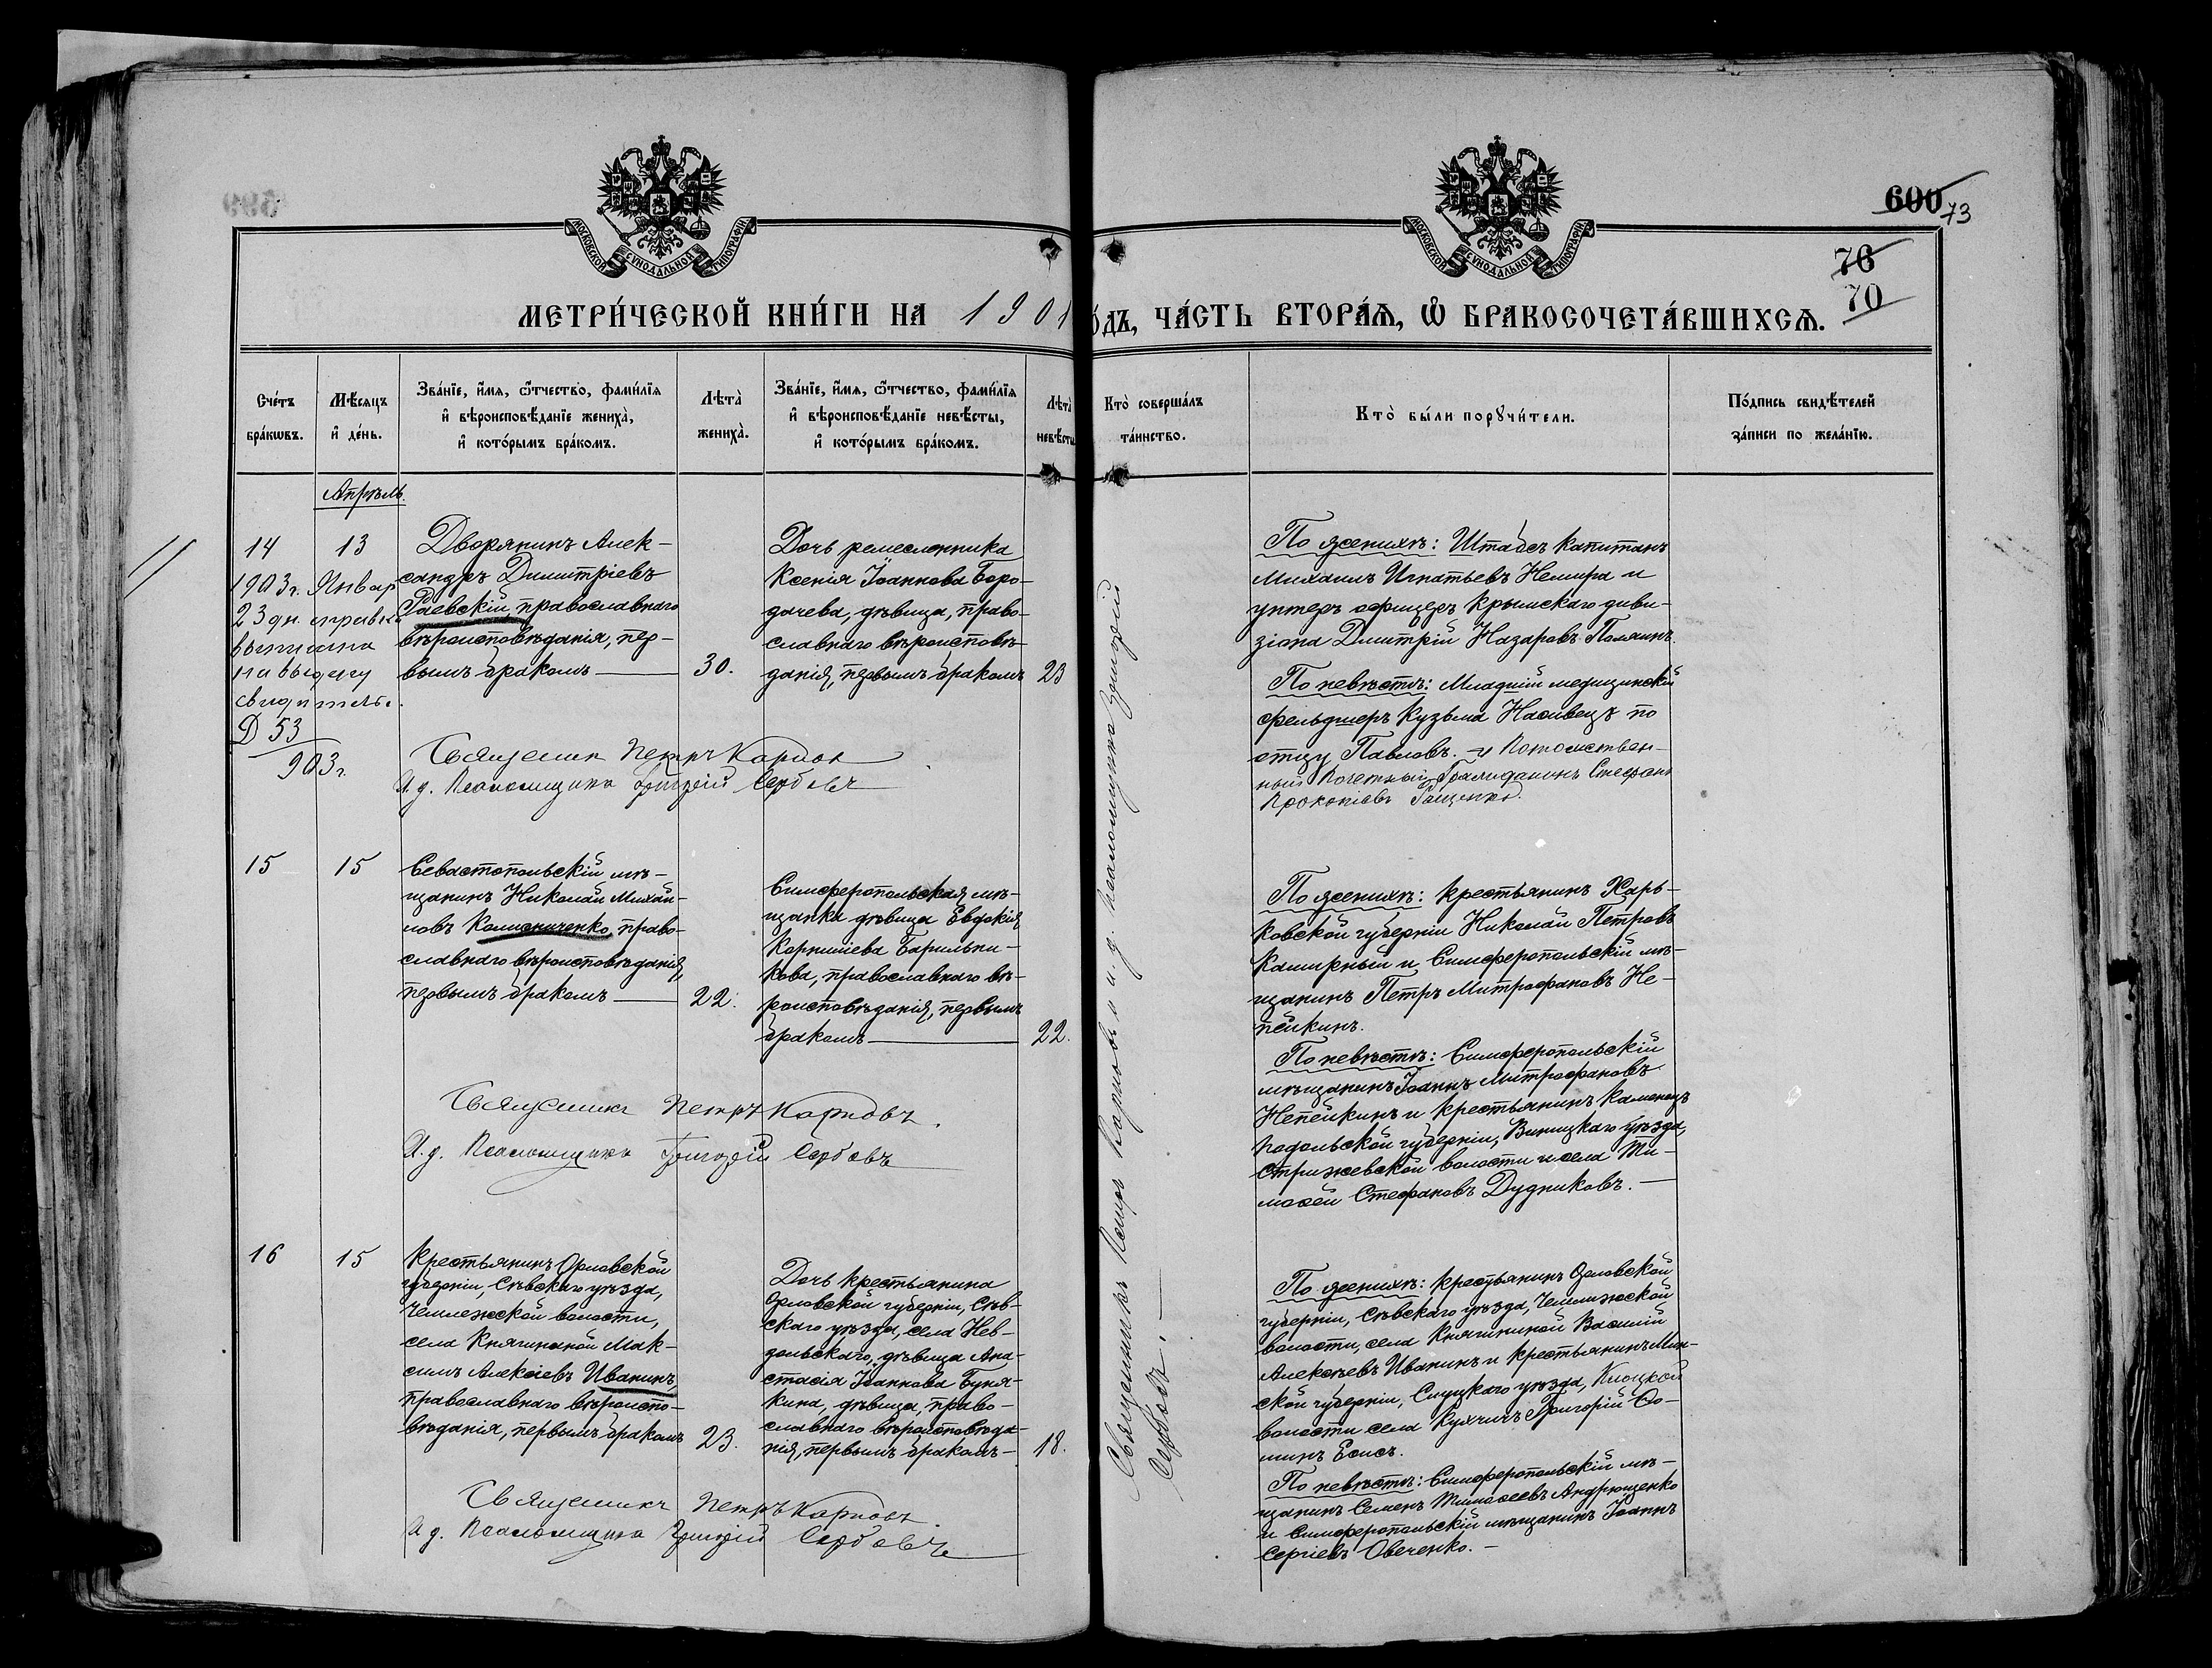 МОСКОВСКОЙ СѴНОДАЛЬНОЙ ТИПОГРАФІИ
МОСКОВСКОЙ СѴНОДАЛЬНОЙ ТИПОГРАФІИ
600
73
76
70
МЕТРИ́ЧЕСКОЙ КНИ́ГИ НА 1901
ОДЪ, ЧА́СТЬ ВТОРА́Ѧ, Ѡ БРАКОСОЧЕТА́ВШИХСѦ.
Сче́тъ бра́кѡвъ.
Мѣ́сѧцъ и де́нь.
Зва́нїе, и́мѧ, ѻтчество, фами́лїѧ
и вѣроисповѣ́данїе жениха̀,
и кото́рымъ бра́комъ.
Лѣта̀ жениха̀.
Зва́нїе, и́мѧ, ѻтчество, фами́лїѧ
и вѣроисповѣ́данїе невѣ́сты,
и кото́рымъ бра́комъ.
Лѣта̀ невѣ́сты
Кто̀ соверша́лъ
та́инство.
Кто̀ бы́ли порꙋчи́тели.
По́дпись свидѣ́телей
за́писи по жела́нїю.
Апрѣль.
14
13
1903г. Январ
23 дн. справка
выписана
на выдачу
свидѣтель.
D 53
903г.
Дворянинъ Алек-
сандръ Димитріевъ
Раевскій, православнаго
вѣроисповѣданія, пер-
вымъ бракомъ
30.
Дочь ремесленника
Ксенія Іоаннова Боро-
дачева, дѣвица, право-
славнаго вѣроисповѣ-
данія, первымъ бракомъ
23
Священник Петръ Карпов
И.д. Псаломщика Григорій Сербовъ
По женихѣ: Штабсъ Капитанъ
Михаилъ Игнатьевъ Немира и
унтеръ офицеръ Крымскаго диви-
зіона Дмитрій Назаровъ
По невѣстѣ: Младшій медицинскій
фельдшеръ Кузьма по
отцу Павловъ. и Потомствен-
ный Почетный Гражданинъ Стефанъ
Прокопіевъ
15
15
Севастопольскій мѣ-
щанинъ Николай Михай-
ловъ право-
славнаго вѣроисповѣданія,
первымъ бракомъ
22.
Симферопольская мѣ-
щанка дѣвица Евдокія
Корниліева Барильни-
кова, православнаго вѣ-
роисповѣданія, первымъ
бракомъ
22.
Священникъ Петръ Карповъ.
И.д. Псаломщика Григорій Сербовъ
По женихѣ: крестьянинъ Харь-
ковской губерніи Николай Петровъ
Каширный и Симферопольскій мѣ-
щанинъ Петръ Митрофановъ Не-
пейкинъ.
По невѣстѣ: Симферопольскій
мѣщанинъ Іоаннъ Митрофановъ
Непейкинъ и крестьянинъ Каменецъ
Подольской губерніи, Виницкаго уѣзда,
Стрижевской волости и села Ти-
мофей Стефановъ Дудниковъ.
16
15
Крестьянинъ Орловской
губерніи, Сѣвскаго уѣзда,
Чемлежской волости,
села Княгининой Мак-
симъ Алексіевъ Иванинъ,
православнаго вѣроиспо-
вѣданія, первымъ бракомъ
23.
Дочь крестьянина
Орловской губерніи, Сѣв-
скаго уѣзда, села Нев-
дольскаго, дѣвица Ана-
стасія Іоаннова Буня-
кина, дѣвица, право-
славнаго вѣроисповѣда-
нія, первымъ бракомъ
18.
Священникъ Петръ Карповъ.
И.д. Псаломщика Григорій Сербовъ
По женихѣ: крестьянинъ Орловской
губерніи, Сѣвскаго уѣзда, Чемлижской
волости, села Княгининой Василій
Алексѣевъ Иванинъ и крестьянинъ Мин-
ской губерніи, Слуцкаго уѣзда, Клецкой
волости села Кухчичъ Григорій Ѳо-
минъ Есисъ.
По невѣстѣ: Симферопольскій мѣ-
щанинъ Семенъ Тимоѳеевъ Андрющенко
и Симферопольскій мѣщанинъ Іоаннъ
Сергіевъ Овеченко.
Священникъ Петръ Карповъ и и.д. псаломщика Григорій
Сербовъ.